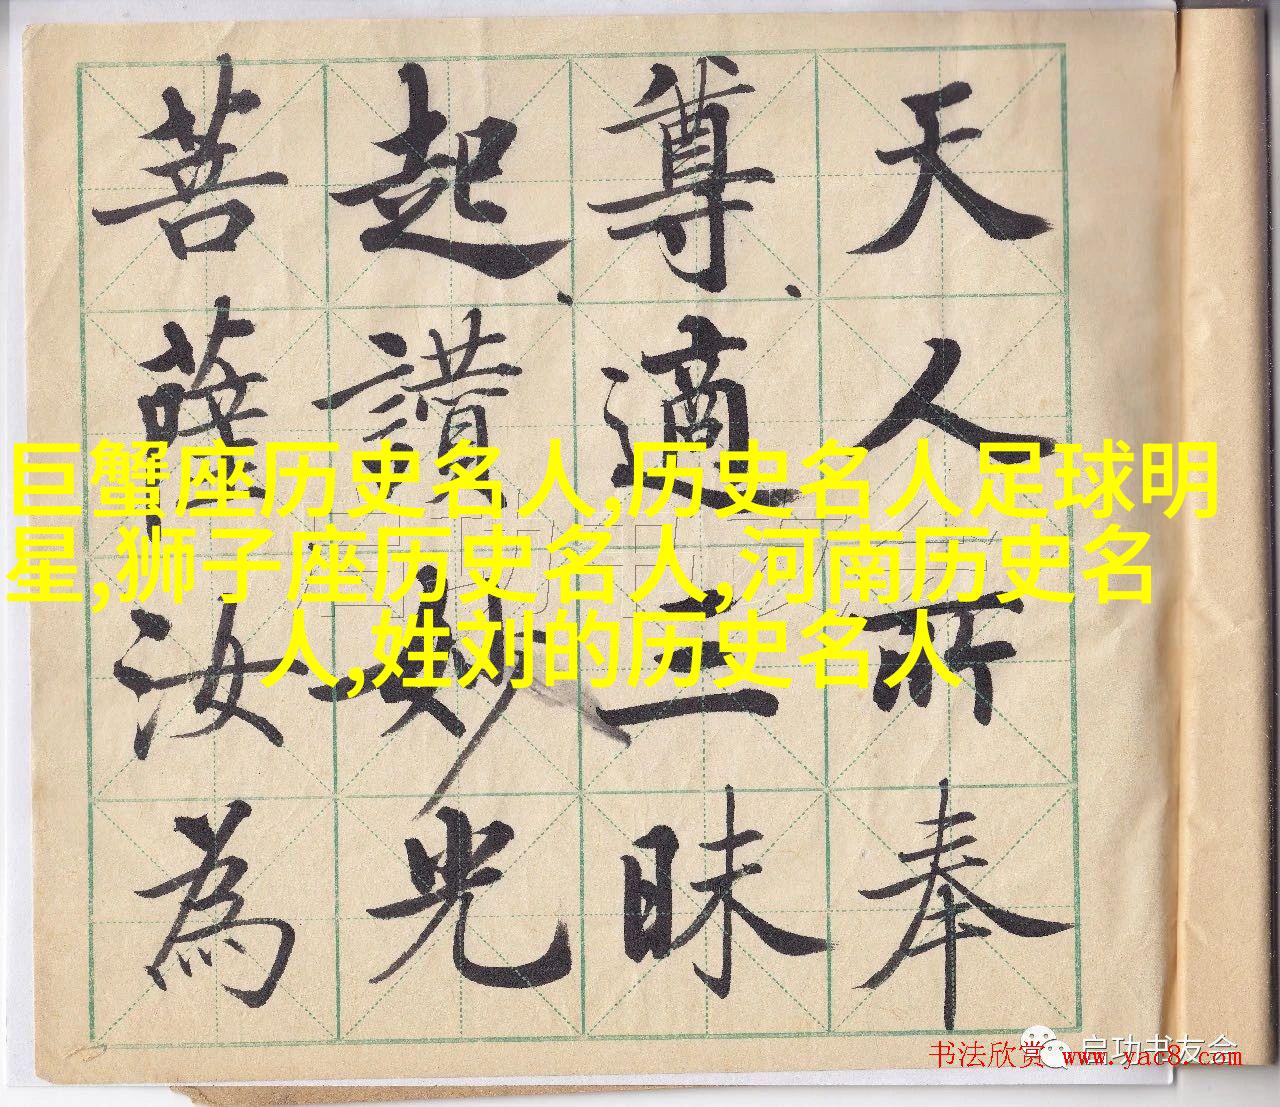 天人所奉
尊適三昧
起讃妙光
菩薩汝為
巨蟹座历史名人,历史名人足球明
星,狮子座历史名人,河南历史名
人,姓刘的历史名人
启功书友会
书法欣赏 www.yac8.com